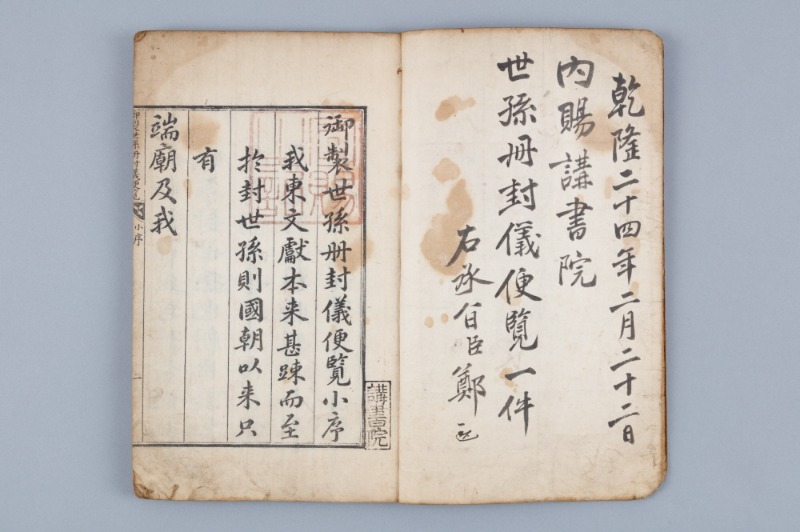 乾隆二十四年二月二十二日
內賜講書院
世孫冊封儀便覽一件
右承旨臣鄭
御製世孫冊封儀便覽小序
我東文獻本来甚踈而至
扵封世孫則國朝以来只
有
端廟及我
講書院
小序
一